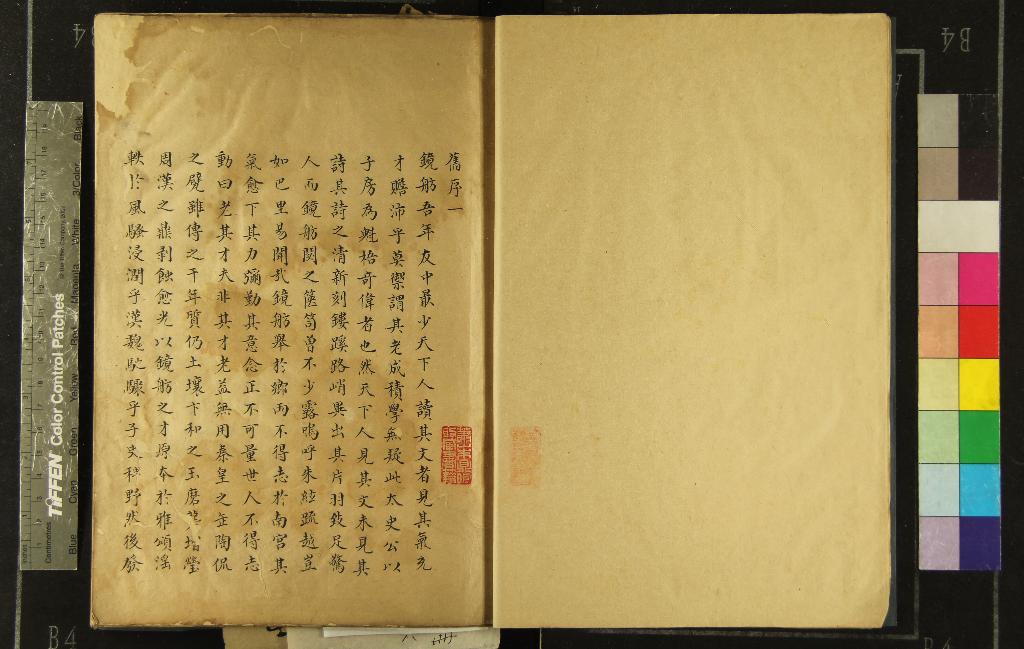 舊序一
鏡舫吾年友中最少天下人讀其文者見其氣充
才贍沛乎莫禦謂其老成積學無疑此太史公以
子房為魁梧奇偉者也然天下人見其文未見其
詩其詩之清新刻鏤蹊路峭異出其片羽致足驚
人而鏡舫閟之篋笥曾不少露嗚呼朱絃疏越豈
如巴里易聞哉鏡舫舉於鄉而不得志於南宮其
氣愈下其力彌勤其意念正不可量世人不得志
動曰老其才夫非其才老益無用秦皇之缶陶侃
之甓雖傳之千年質仍土壤卞和之玉磨礲增瑩
周漢之鼎剝蝕愈光以鏡舫之才原本於雅頌滛
軼於風騷浸潤乎漢魏馳驟乎子史稗野然後發
TIFFEN Color Control Patches
Blue
Cyan
Green
Yellow
Red
Magenta
White
3/Color
Black
Centimetres
B4
B4
B4